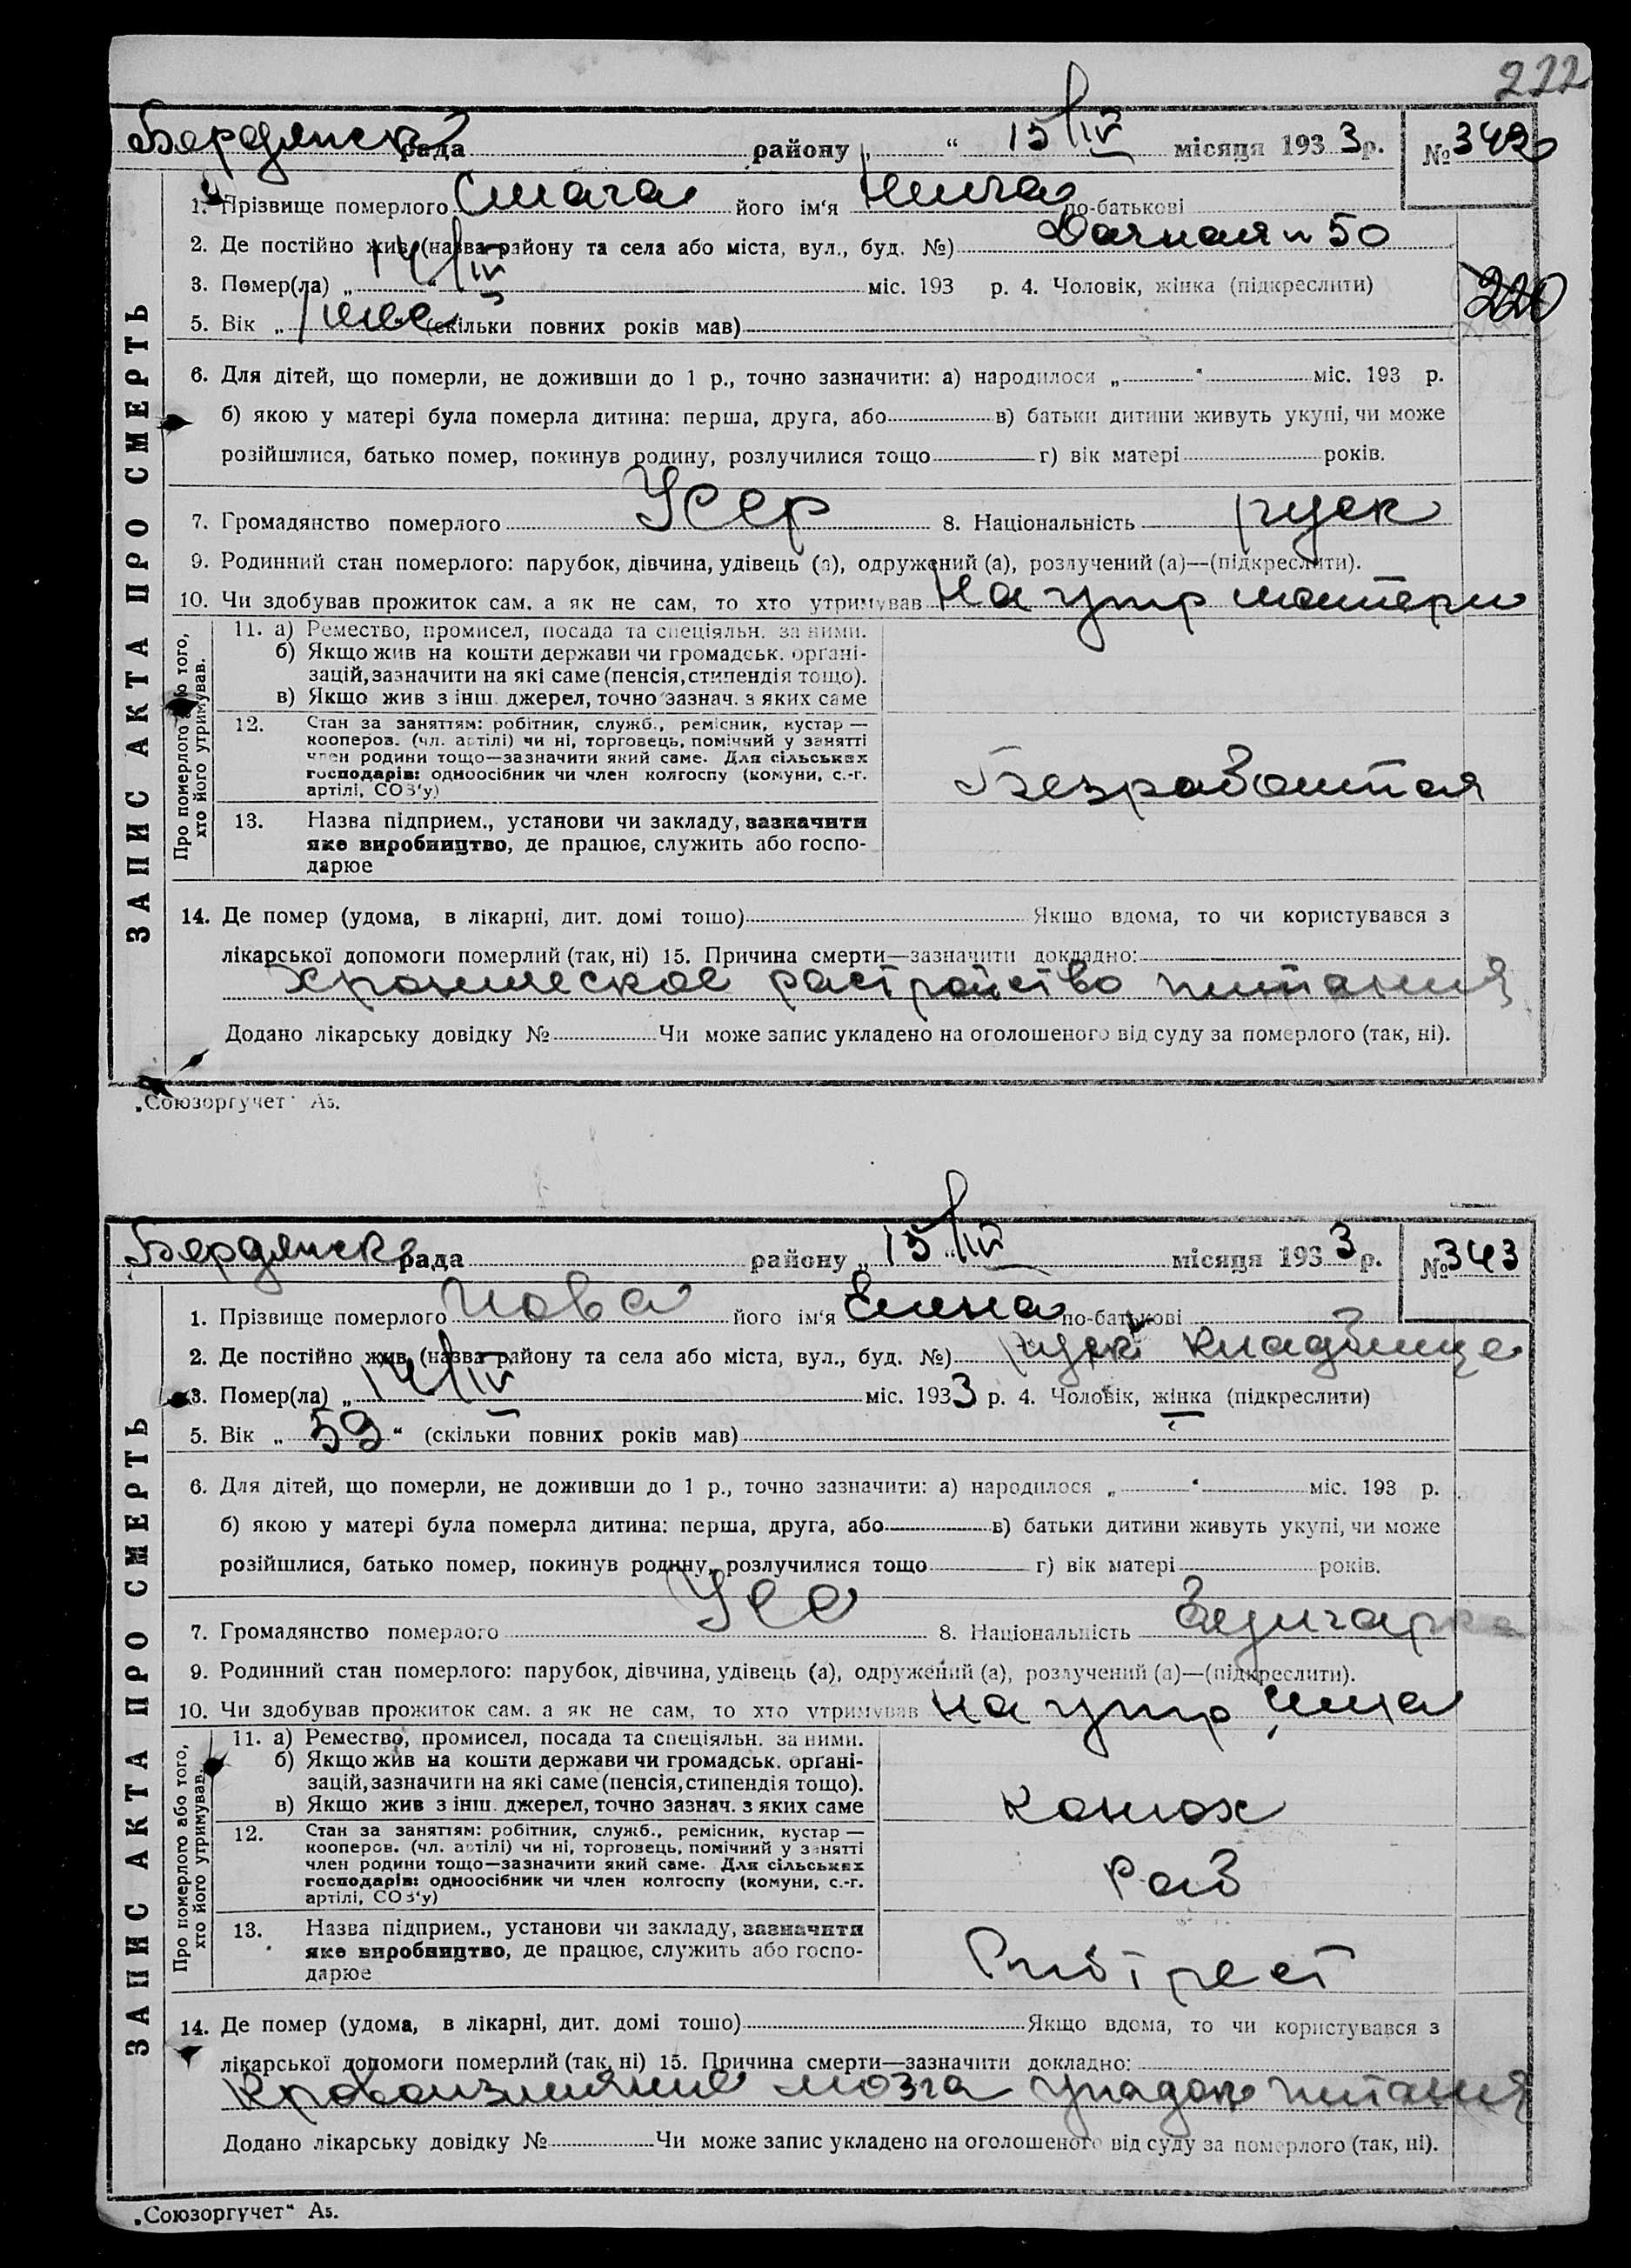 222
Бердянск рада района „ “ 15/IV місяця 1933 р. № 342
1. Прізвище померлого його ім‘я по-батькові
2. Де постійно жив (назва району та села або міста, вул., буд. №) Дачная n 50
3. Помер(ла) „ 14/IV “ міс. 193 р. 4. Чоловік, жінка (підкреслити)
220
5. Вік „ “ (скільки повних років мав)
6. Для дітей, що померли, не доживши до 1 р., точно зазначити: а) народилося „ “ міс. 193 р.
б) якою у матері була померла дитина: перша, друга, або в) батьки дитини живуть укупі, чи може
розійшлися, батько помер, покинув родину, розлучилися тощо г) вік матері років.
7. Громадянство померлого Усср 8. Національність руск
9. Родинний стан померлого: парубок, дівчина, удівець (а), одружений (а), розлучений (а)—(підкреслити).
10. Чи здобував прожиток сам, а як не сам, то хто утримував на утр матери
ЗАПИС АКТА ПРО СМЕРТЬ
Про померлого або того, хто його утримував.
11. а) Ремество, промисел, посада та спеціяльн. за ними.
б) Якщо жив на кошти держави чи громадськ. органі-
зацій, зазначити на які саме (пенсія, стипендія тощо).
в) Якщо жив з інш. джерел, точно зазнач. з яких саме
12. Стан за заняттям: робітник, служб., ремісник, кустар —
кооперов. (чл. артілі) чи ні, торговець, помічний у занятті
член родини тощо—зазначити який саме. Для сільських
господарів: одноосібник чи член колгоспу (комуни, с.-г.
артілі, СОЗ‘у)
Безработная
13. Назва підприєм., установи чи закладу, зазначити
яке виробництво, де працює, служить або госпо-
дарює
14. Де помер (удома, в лікарні, дит. домі тощо) Якщо вдома, то чи користувався з
лікарської допомоги померлий (так, ні) 15. Причина смерти—зазначити докладно:
хроническое растройство питания
Додано лікарську довідку № Чи може запис укладено на оголошеного від суду за померлого (так, ні).
„Союзоргучет“ А5.
Бердянск рада району „ 15/IV “ місяця 1933 р. № 343
1. Прізвище померлого його ім‘я Елена по-батькові
2. Де постійно жив (назва району та села або міста, вул., буд. №) руск кладбище
3. Помер(ла) „ 14/IV міс. 1933 р. 4. Чоловік, жінка (підкреслити)
5. Вік „ 59 “ (скільки повних років мав)
6. Для дітей, що померли, не доживши до 1 р., точно зазначити: а) народилося „ “ міс. 193 р.
б) якою у матері була померла дитина: перша, друга, або в) батьки дитини живуть укупі, чи може
розійшлися, батько помер, покинув родину, розлучилися тощо г) вік матері років.
7. Громадянство померлого 8. Національність
9. Родинний стан померлого: парубок, дівчина, удівець (а), одружений (а), розлучений (а)—(підкреслити).
10. Чи здобував прожиток сам, а як не сам, то хто утримував на утр
ЗАПИС АКТА ПРО СМЕРТЬ
Про померлого або того, хто його утримував.
11. а) Ремество, промисел, посада та спеціяльн. за ними.
б) Якщо жив на кошти держави чи громадськ. органі-
зацій, зазначити на які саме (пенсія, стипендія тощо).
в) Якщо жив з інш. джерел, точно зазнач. з яких саме
конюх
12. Стан за заняттям: робітник, служб., ремісник, кустар —
кооперов. (чл. артілі) чи ні, торговець, помічний у занятті
член родини тощо—зазначити який саме. Для сільських
господарів: одноосібник чи член колгоспу (комуни, с.-г.
артілі, СОЗ‘у)
Раб
13. Назва підприєм., установи чи закладу, зазначити
яке виробництво, де працює, служить або госпо-
дарює
Рибтрест
14. Де помер (удома, в лікарні, дит. домі тощо) Якщо вдома, то чи користувався з
лікарської допомоги померлий (так, ні) 15. Причина смерти—зазначити докладно:
Кровоизлияние мозга упадок питания
Додано лікарську довідку № Чи може запис укладено на оголошеного від суду за померлого (так, ні).
„Союзоргучет“ А5.